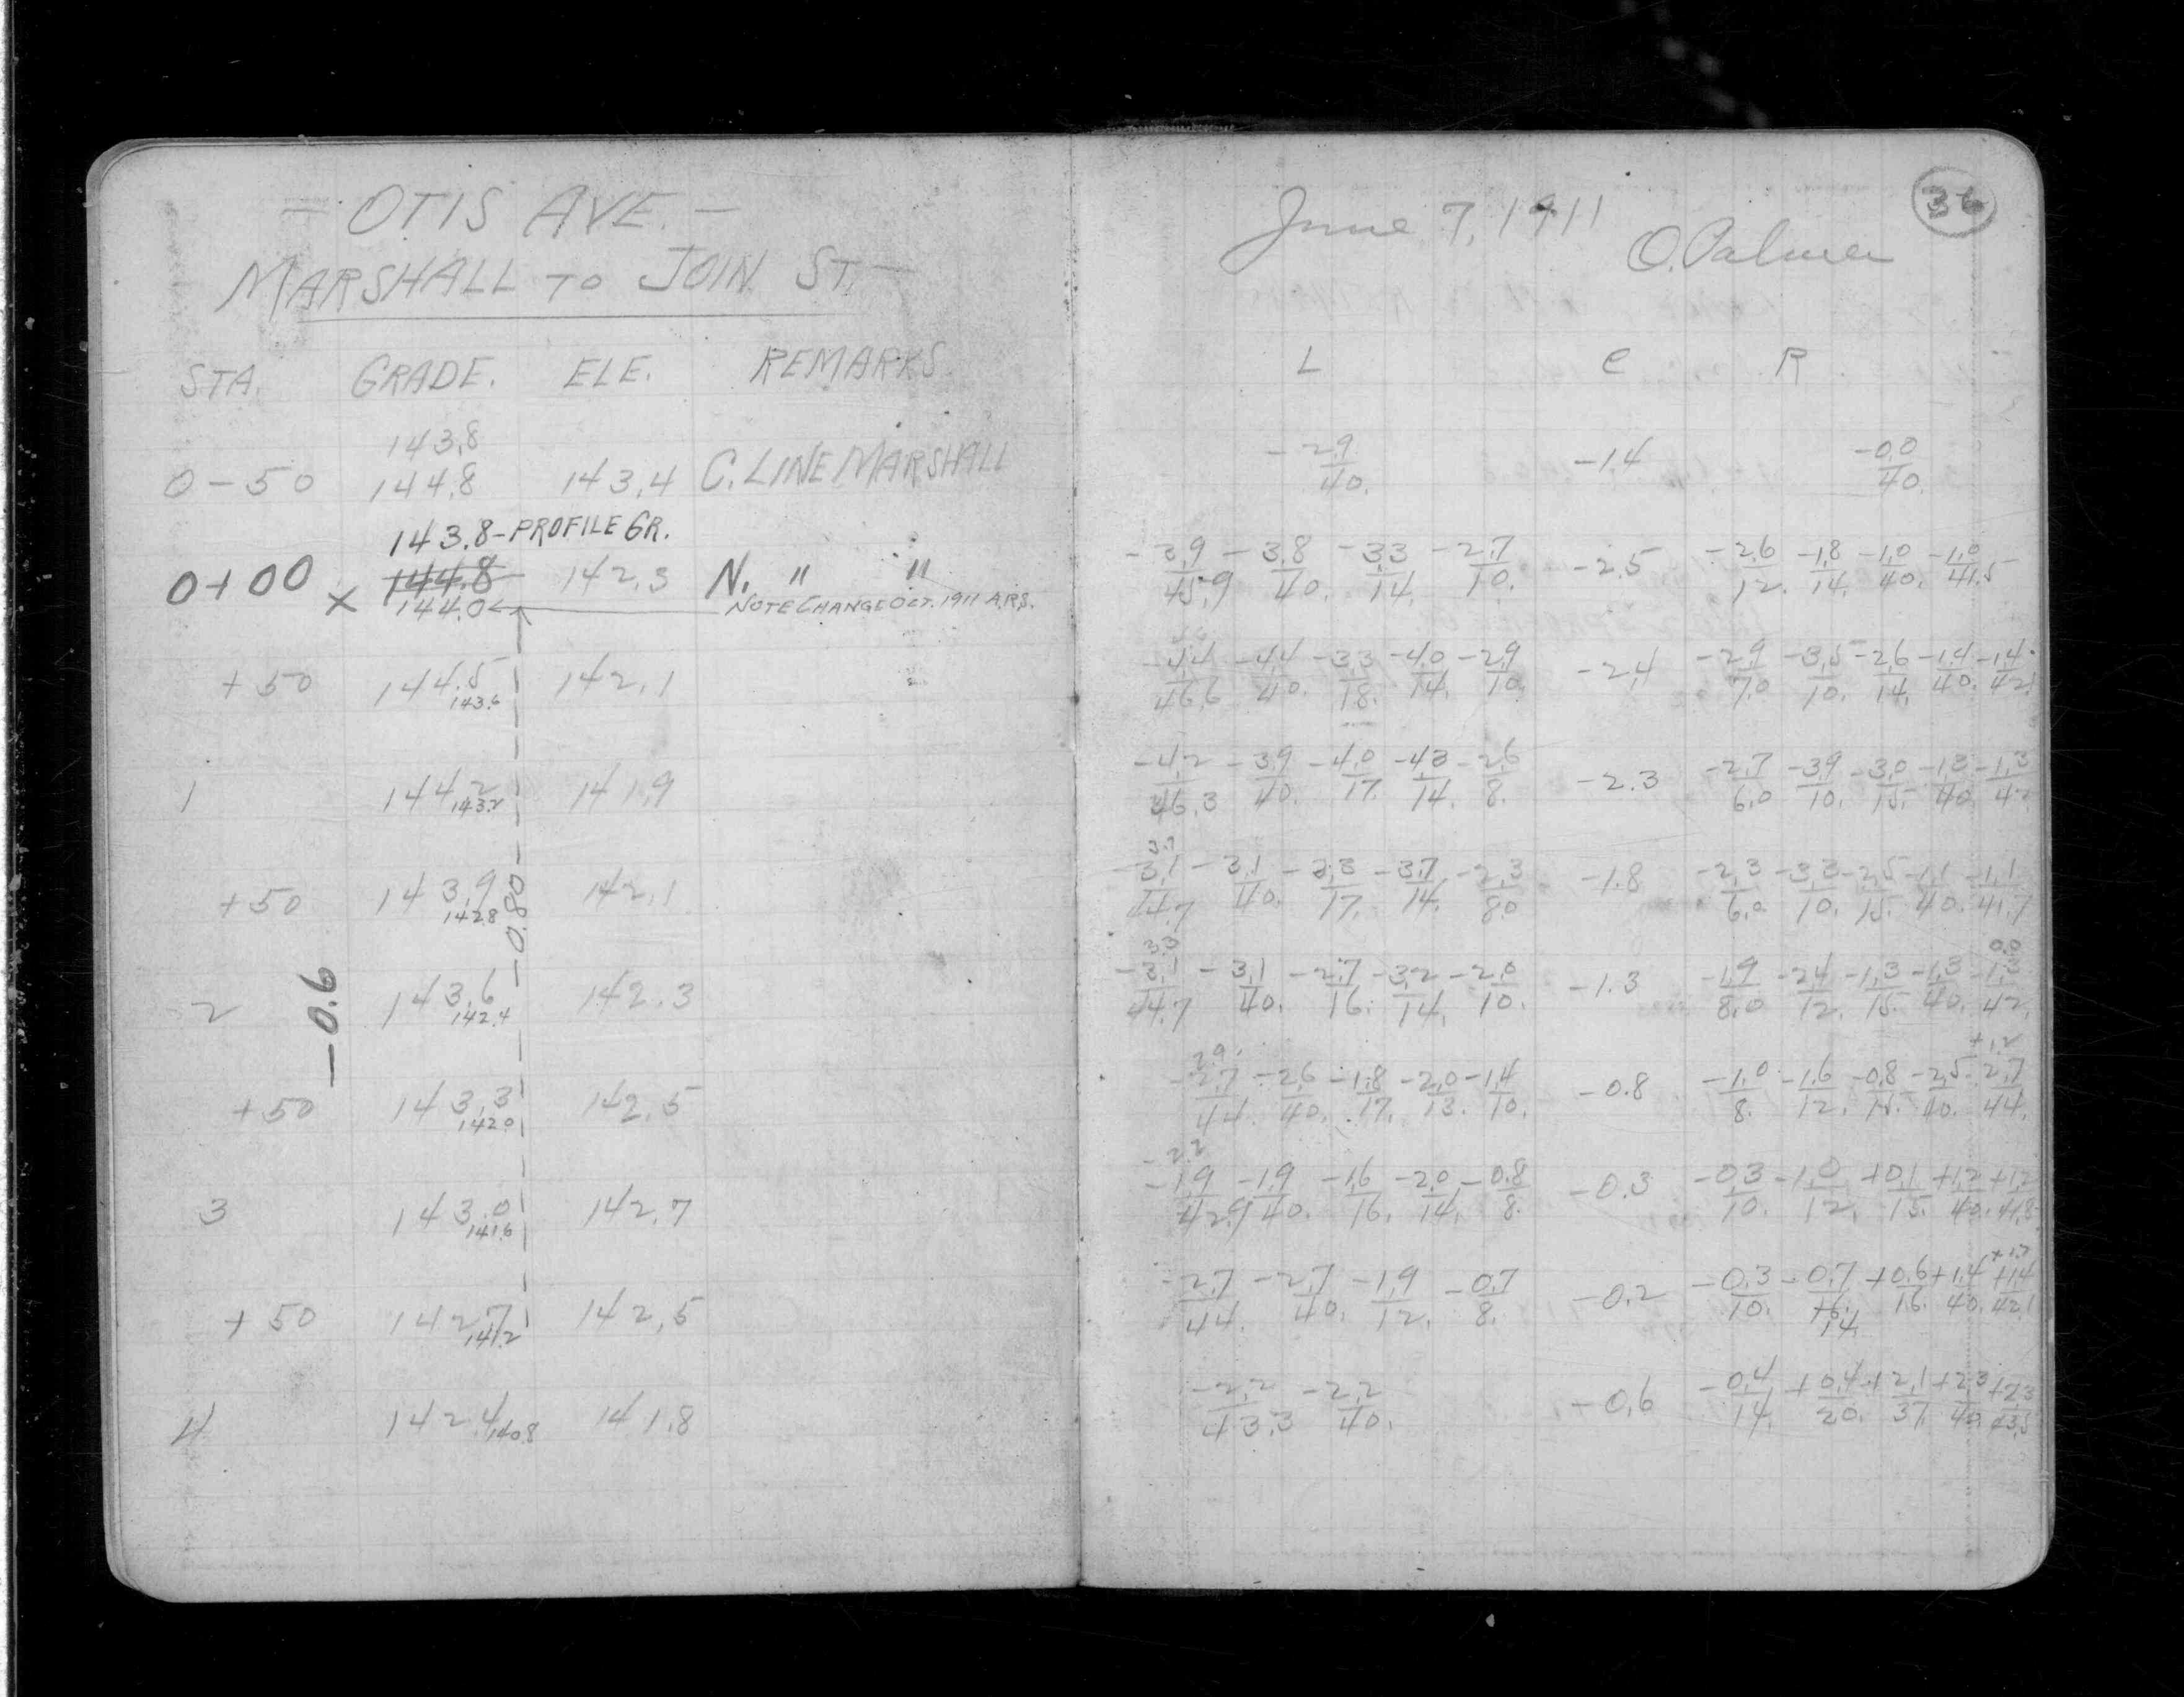 - OTIS AVE. -
MARSHALL TO JOIN ST. -
STA. GRADE. ELE. REMARKS.
143.8
0-50 144.8 143.4 C. LINE MARSHALL
143.8-PROFILE GR.
0+00 x 144.8 142.3 N. " "
144.0 NOTE CHANGE OCT. 1911 A.R.S.
+50 144.5 142.1
143.6
1 144.2 141.9
143.2
+50 143.9 142.1
142.8
-0.80
2 143.6 142.3
142.4
-0.6
+50 143.3 142.5
142.0
3 143.0 142.7
141.6
+50 142.7 142.5
141.2
4 142.4 141.8
140.8
36
June 7, 1911
O. Palmer
L C R
-2.9 -1.4 -0.0
40. 40.
-3.9 -3.8 -3.3 -2.7 -2.5 -2.6 -1.8 -1.0 -1.0
45.9 40. 14. 10. 12. 14. 40. 41.5
-4.4 -4.4 -3.3 -4.0 -2.9 -2.4 -2.9 -3.5 -2.6 -1.4 -1.4
46.6 40. 18. 14. 10. 7.0 10. 14. 40. 42.
-4.2 -3.9 -4.0 -4.3 -2.6 -2.3 -2.7 -3.9 -3.0 -1.3 -1.3
46.3 40. 17. 14. 8. 6.0 10. 15. 40. 42
3.7
-3.1 -3.1 -3.3 -3.7 -2.3 -1.8 -2.3 -3.3 -2.5 -1.1 -1.1
44.7 40. 17. 14. 8.0 6.0 10. 15. 40. 41.7
3.3 0.0
-3.1 -3.1 -2.7 -3.2 -2.0 -1.3 -1.9 -2.4 -1.3 -1.3 -1.3
44.7 40. 16. 14. 10. 8.0 12. 15. 40. 42.
2.9 +1.2
-2.7 -2.6 -1.8 -2.0 -1.4 -0.8 -1.0 -1.6 -0.8 -2.5 -2.7
44. 40. 17. 13. 10. 8. 12. 15. 40. 44.
-2.2
-1.9 -1.9 -1.6 -2.0 -0.8 -0.3 -0.3 -1.0 +0.1 +1.2 +1.2
42.9 40. 16. 14. 8. 10. 12. 15. 40. 41.8
+1.7
-2.7 -2.7 -1.9 -0.7 -0.2 -0.3 -0.7 +0.6 +1.4 +1.4
44. 40. 12. 8. 10. 16. 16. 40. 42.1
14.
-2.2 -2.2 -0.6 -0.4 +0.4 +2.1 +2.3 +2.3
43.3 40. 14. 20. 37. 40. 43.5